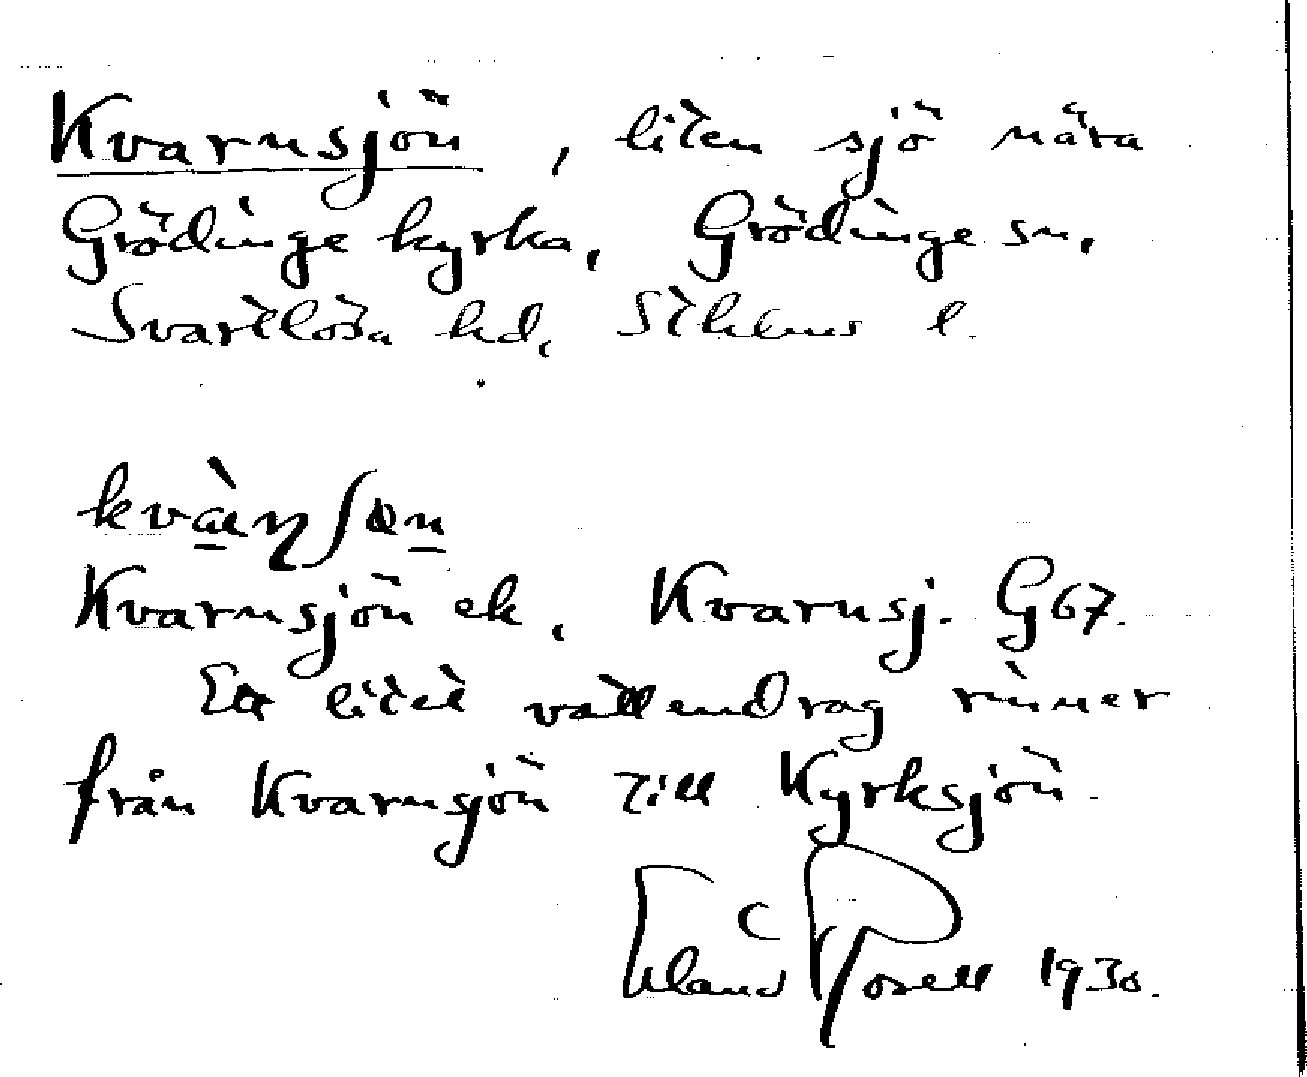 Kvarnsjön, liten sjö nära
Grödinge kyrka, Grödinge sn,
Svartlösa hd, Sthlms l.
Kvarnsjön ek, Kvarnsj. G67.
Ett litet vattendrag rinner
från Kvarnsjön till Kyrksjön.
Erland Rosell 1930.